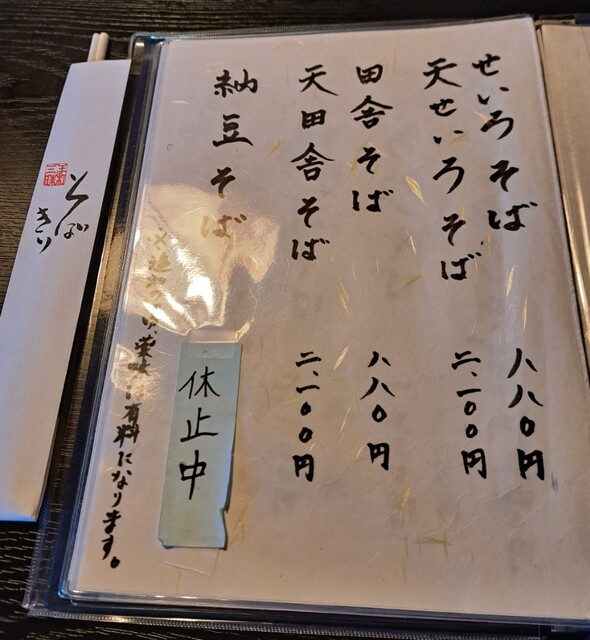 せいろそば 八八〇円
天せいろそば 二、一〇〇円
田舎そば 八八〇円
天田舎そば 二、一〇〇円
納豆そば
休止中
薬味は有料になります。
そばきり